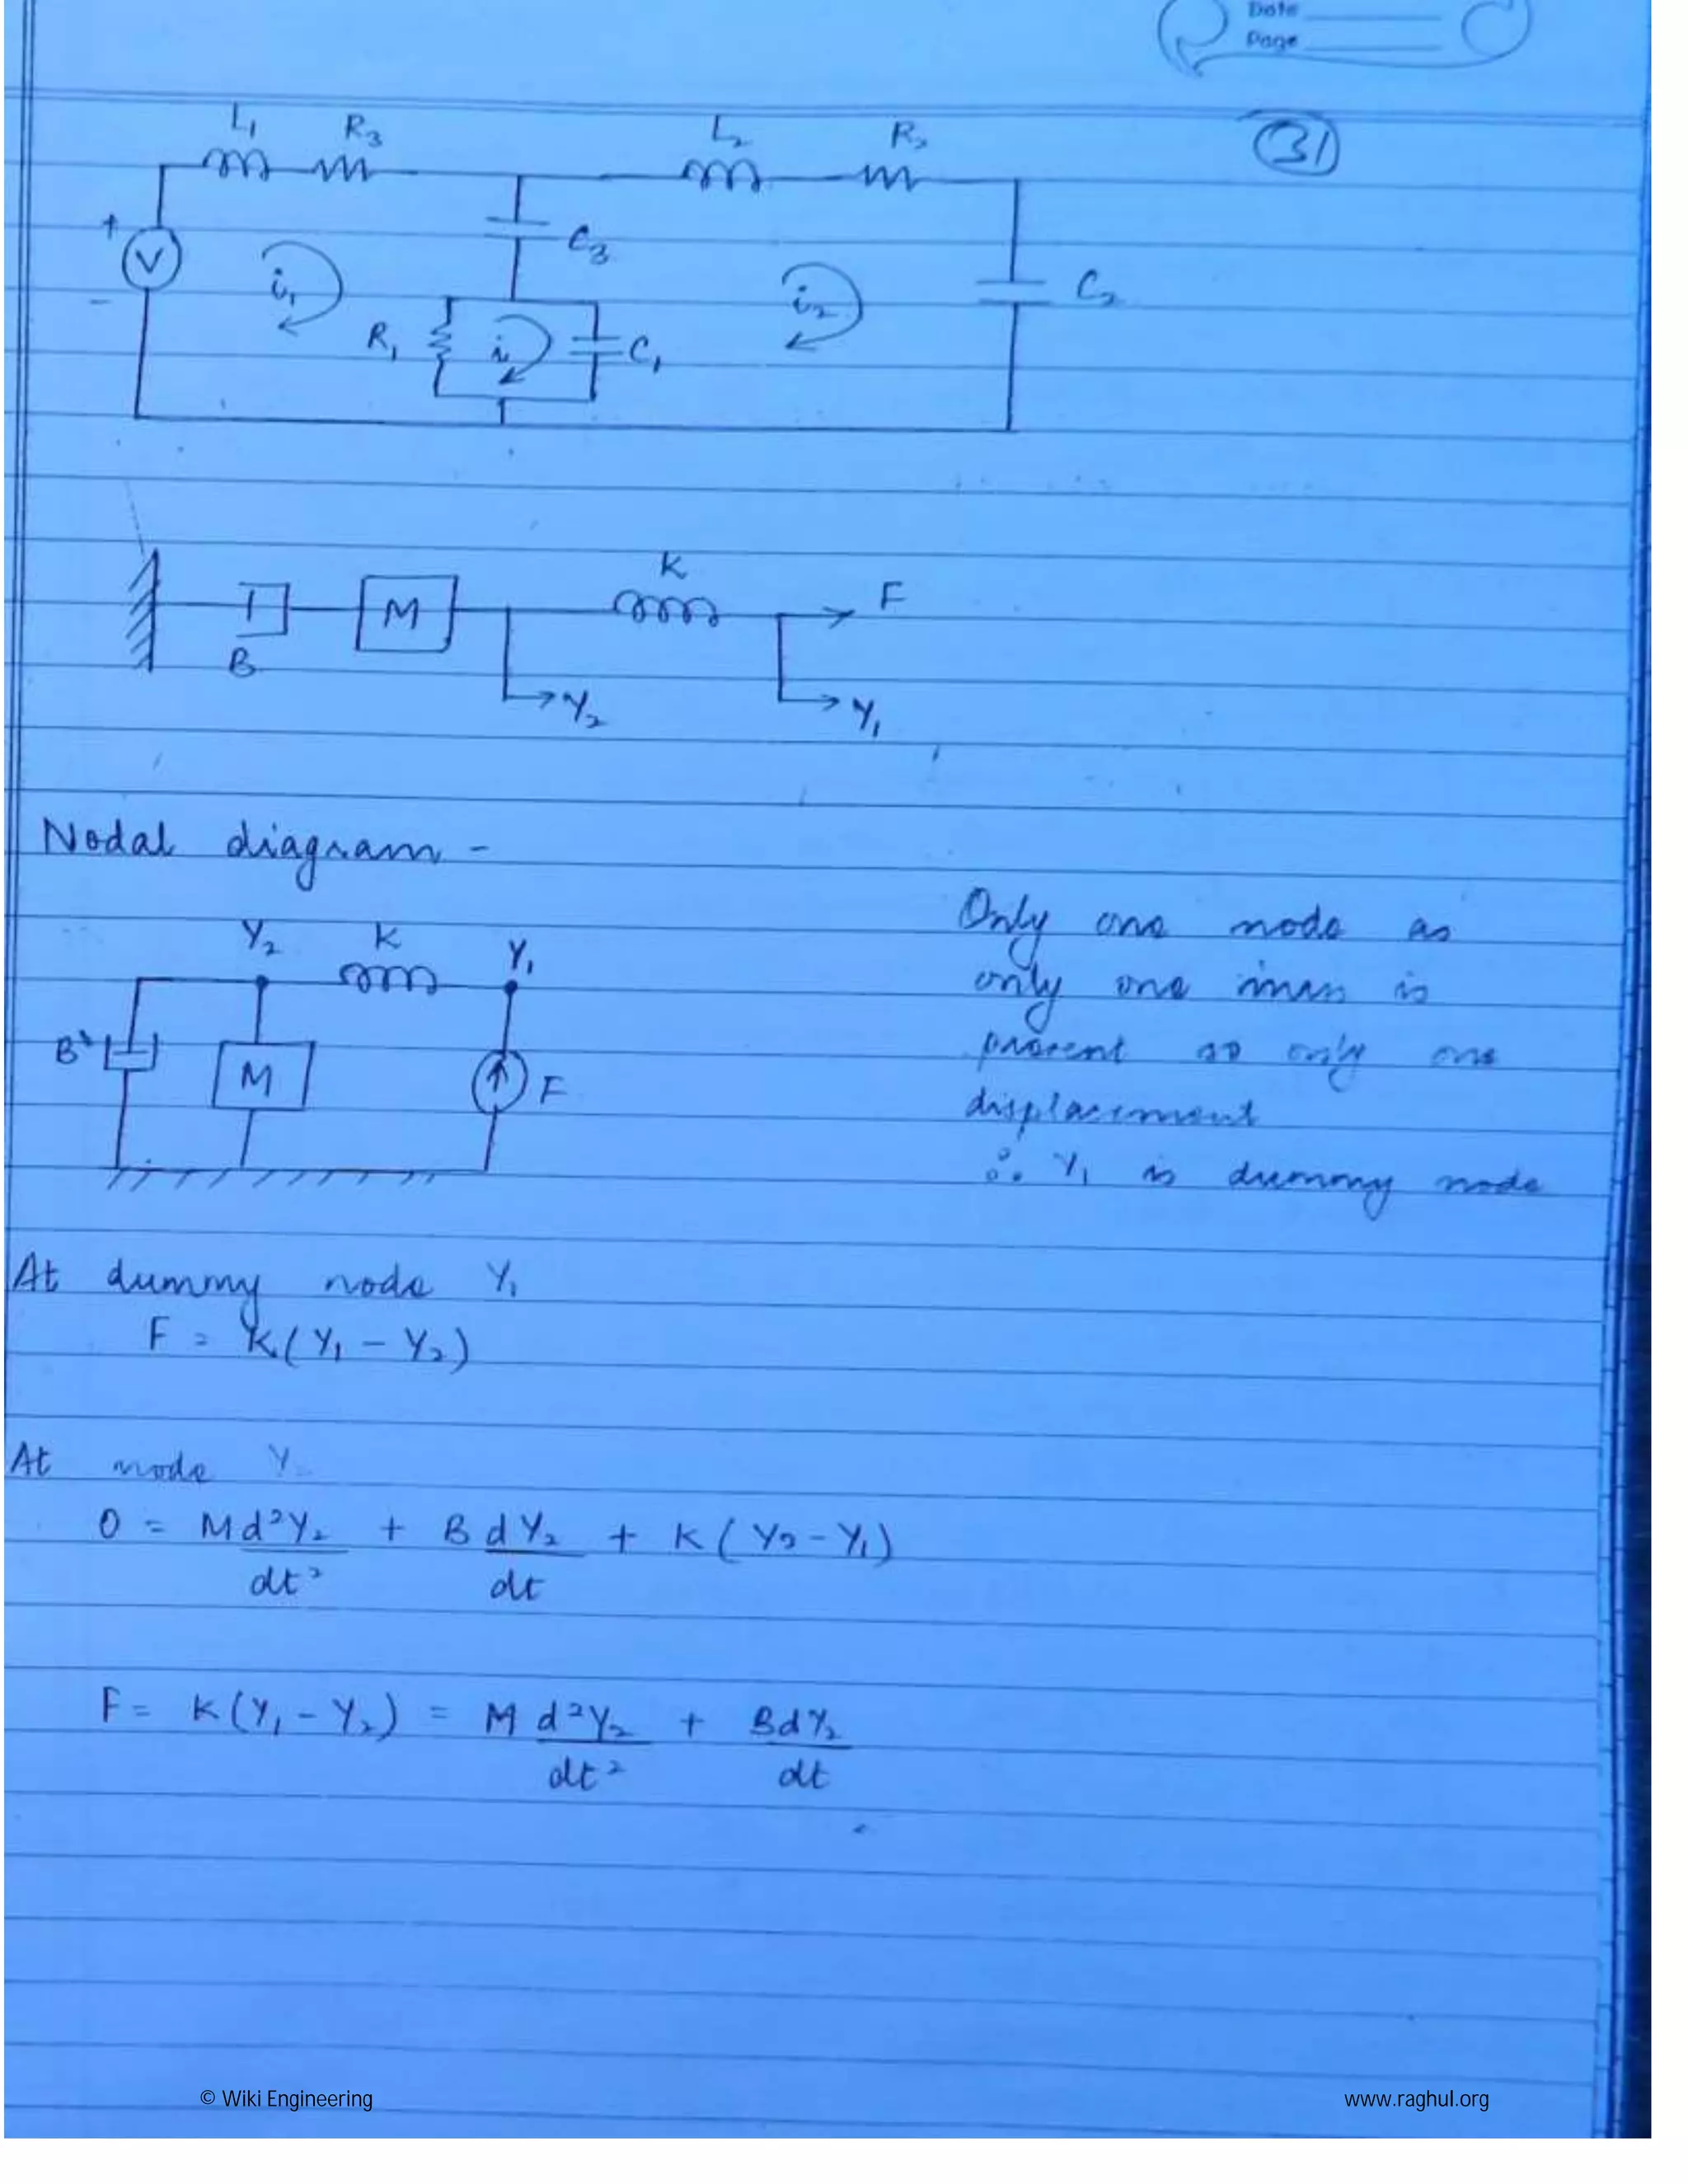 Date
Page
31
L1 R3 L2 R2
+ V -
i1
C3
i2
C2
R1 i C1
K
M
F
B
Y2
Y1
Nodal diagram -
Y2 K Y1
B M F
Only one node as
only one mass is
present so only one
displacement
∴ Y1 is dummy node
At dummy node Y1
F = K(Y1 - Y2)
At node Y2
0 = M d²Y2/dt² + B dY2/dt + K(Y2 - Y1)
F = K(Y1 - Y2) = M d²Y2/dt² + B dY2/dt
© Wiki Engineering
www.raghul.org